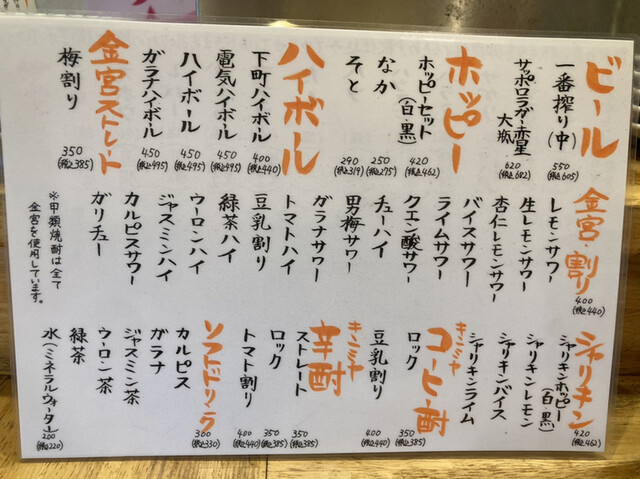 ビール
一番搾り(中)
550
(税込605)
サッポロラガー赤星
大瓶
620
(税込682)
ホッピー
ホッピーセット
(白・黒)
420
(税込462)
なか
250
(税込275)
そと
290
(税込319)
ハイボール
下町ハイボール
400
(税込440)
電気ハイボール
450
(税込495)
ハイボール
450
(税込495)
ガラナハイボール
450
(税込495)
金宮ストレート
梅割り
350
(税込385)
金宮・割り
400
(税込440)
レモンサワー
生レモンサワー
杏仁レモンサワー
バイスサワー
ライムサワー
クエン酸サワー
チューハイ
男梅サワー
ガラナサワー
トマトハイ
豆乳割り
緑茶ハイ
ウーロンハイ
ジャスミンハイ
カルピスサワー
ガリチュー
※甲類焼酎は全て
金宮を使用しています。
シャリキン
420
(税込462)
シャリキンホッピー
(白・黒)
シャリキンレモン
シャリキンバイス
シャリキンライム
キンミヤ
コーヒー酎
ロック
350
(税込385)
豆乳割り
400
(税込440)
キンミヤ
辛酎
ストレート
350
(税込385)
ロック
350
(税込385)
トマト割り
400
(税込440)
ソフトドリンク
300
(税込330)
カルピス
ガラナ
ジャスミン茶
ウーロン茶
緑茶
水(ミネラルウォーター)
200
(税込220)